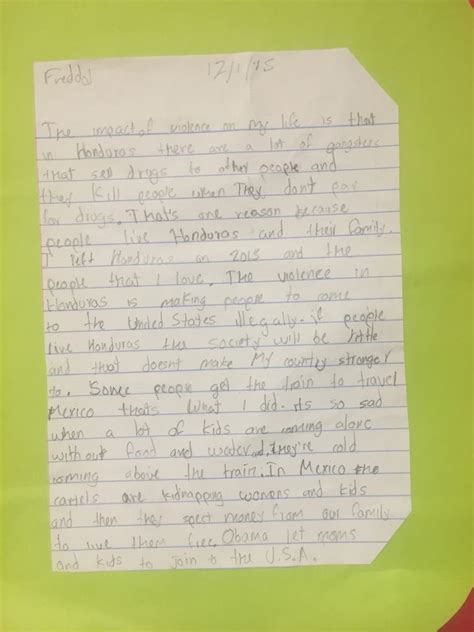 Freddy 12/1/15
The impact of violence on my life is that
in Honduras there are a lot of gangsters
that sell drogs to other people and
they kill people when They dont pay
for drogs. That's one reason because
people live Honduras and their family.
I left Honduras on 2013 and the
people that I love. The violence in
Honduras is making people to come
to the United States illegally. if people
live Honduras the society will be little
and that doesnt make My country stronger
to. Some people get the train to travel
Mexico thats what I did. its so sad
when a lot of kids are coming alone
without food and water, they're cold
coming above the train. In Mexico the
cartels are kidnapping womens and kids
and then they spect money from our family
to live them free. Obama let moms
and kids to join to the U.S.A.